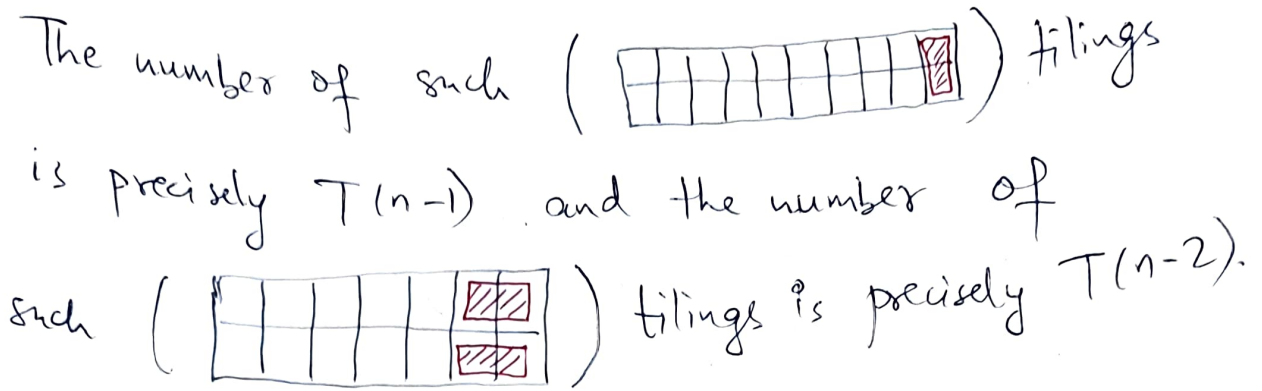 The number of such ( ) tilings
is precisely T(n-1) and the number of
such ( ) tilings is precisely T(n-2).